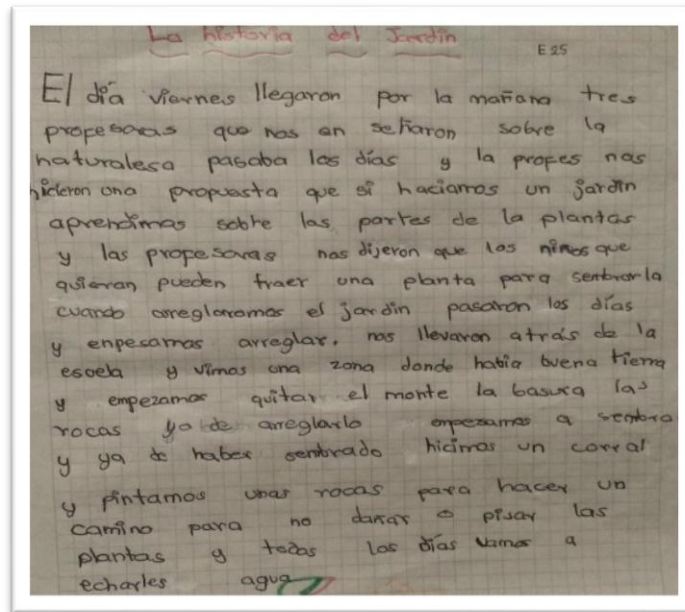 La historia del Jardín
E 25
El día viernes llegaron por la mañana tres
propesoras que nos an señaron sobre la
naturalesa pasaba los días y la propes nos
hicieron una propuesta que si haciamos un jardín
aprendimos sobre las partes de la plantas
y las propesoras nos dijeron que los niños que
quieran pueden traer una planta para sembrarla
cuando arreglaramos el jardin pasaron los días
y enpesamos arreglar. nos llevaron atrás de la
escuela y vimos una zona donde había buena tierra
y empezamos quitar el monte la basura las
rocas ya de arreglarlo empezamos a sembra
y ya de haber sembrado hicimos un corral
y pintamos unas rocas para hacer un
camino para no dañar o pisar las
plantas y todas los días vamos a
echarles agua